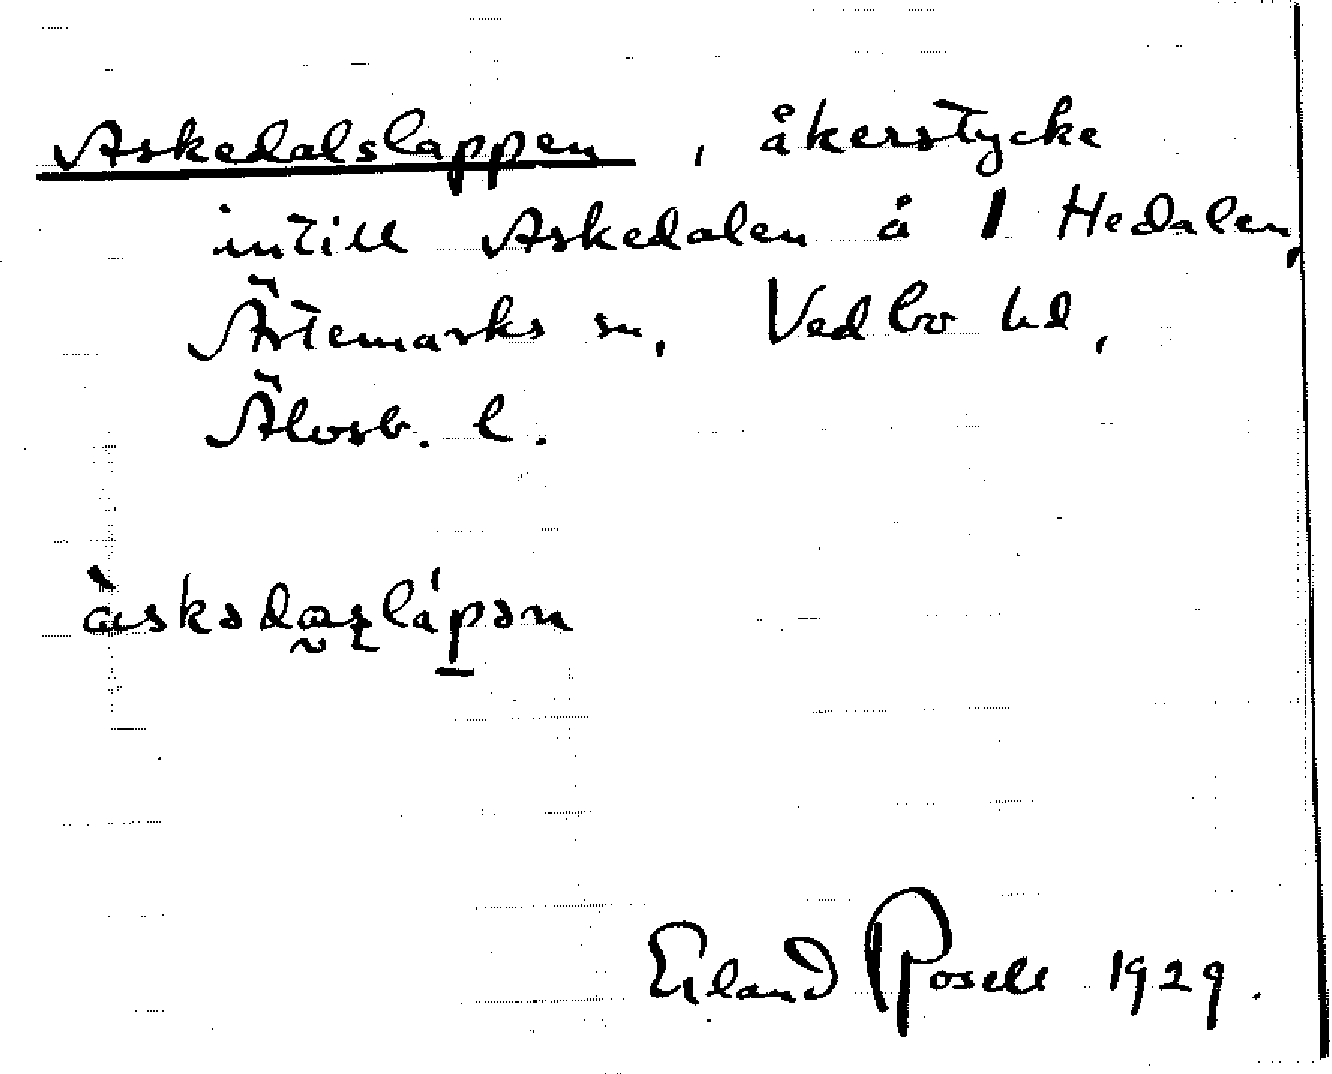 Askedalslappen, åkerstycke
intill Askedalen å 1 Hedalen,
Ärtemarks sn, Vedbo hd,
Älvsb. l.
àskədaʂlápən
Erland Rosell 1929.